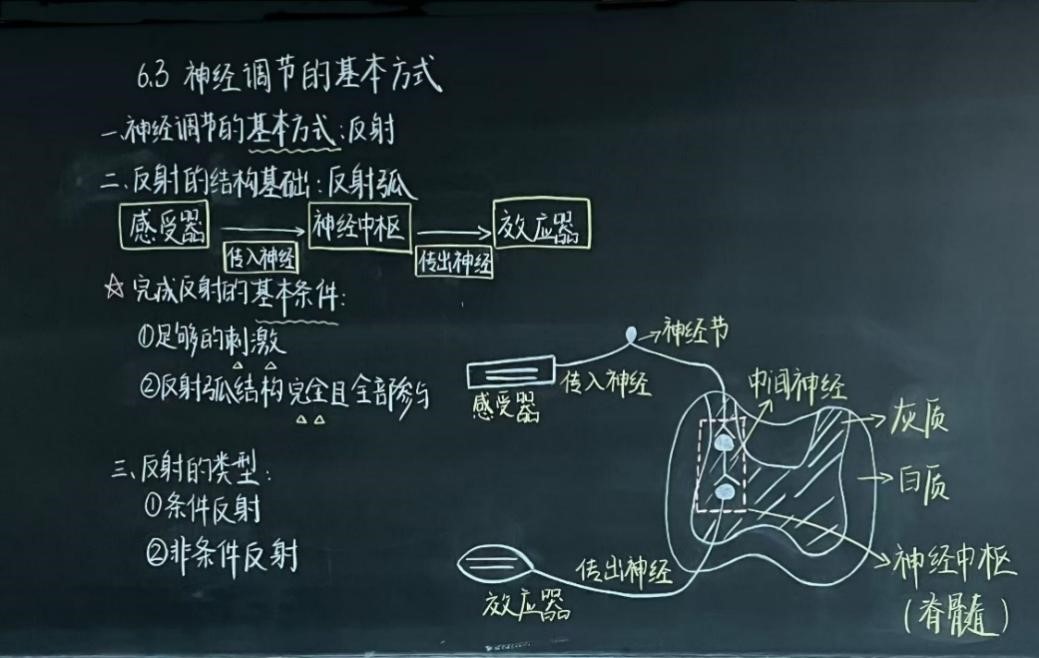 6.3 神经调节的基本方式
一、神经调节的基本方式:反射
二、反射的结构基础:反射弧
感受器 神经中枢 效应器
传入神经 传出神经
☆完成反射的基本条件:
①足够的刺激
②反射弧结构完全且全部参与
三、反射的类型:
①条件反射
②非条件反射
神经节
传入神经
感受器
中间神经
灰质
白质
传出神经
效应器
神经中枢
(脊髓)